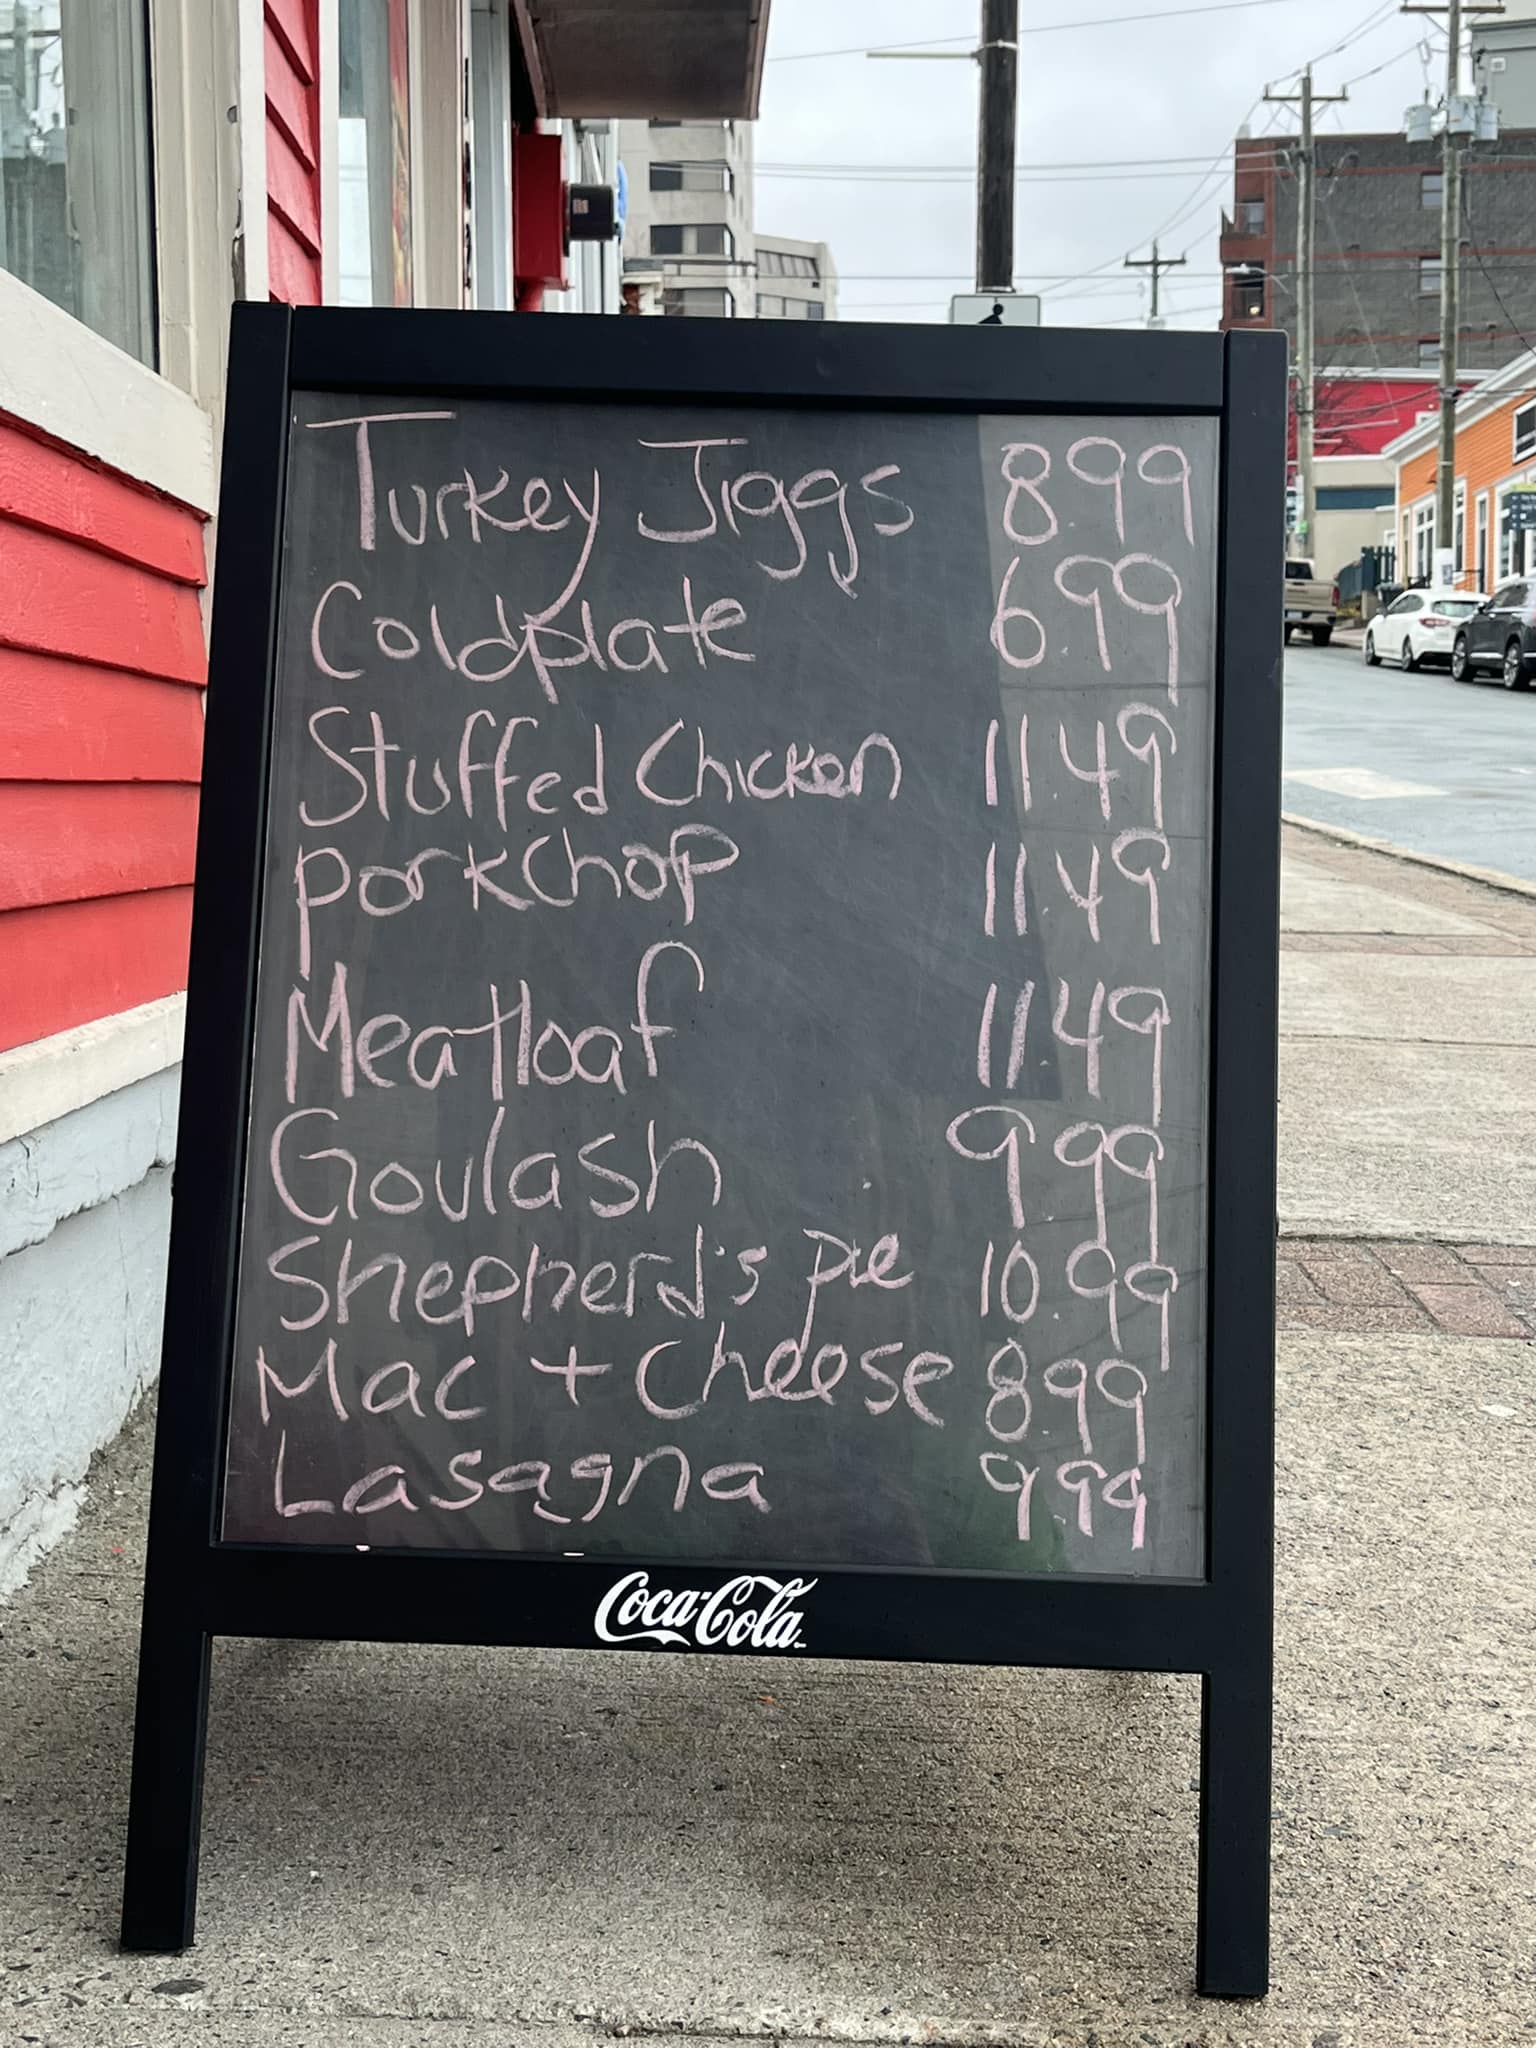 Turkey Jiggs 8.99
Coldplate 6.99
Stuffed Chicken 11.49
porkchop 11.49
Meatloaf 11.49
Goulash 9.99
Shepherd's pie 10.99
Mac + cheese 8.99
Lasagna 9.99
Coca-Cola